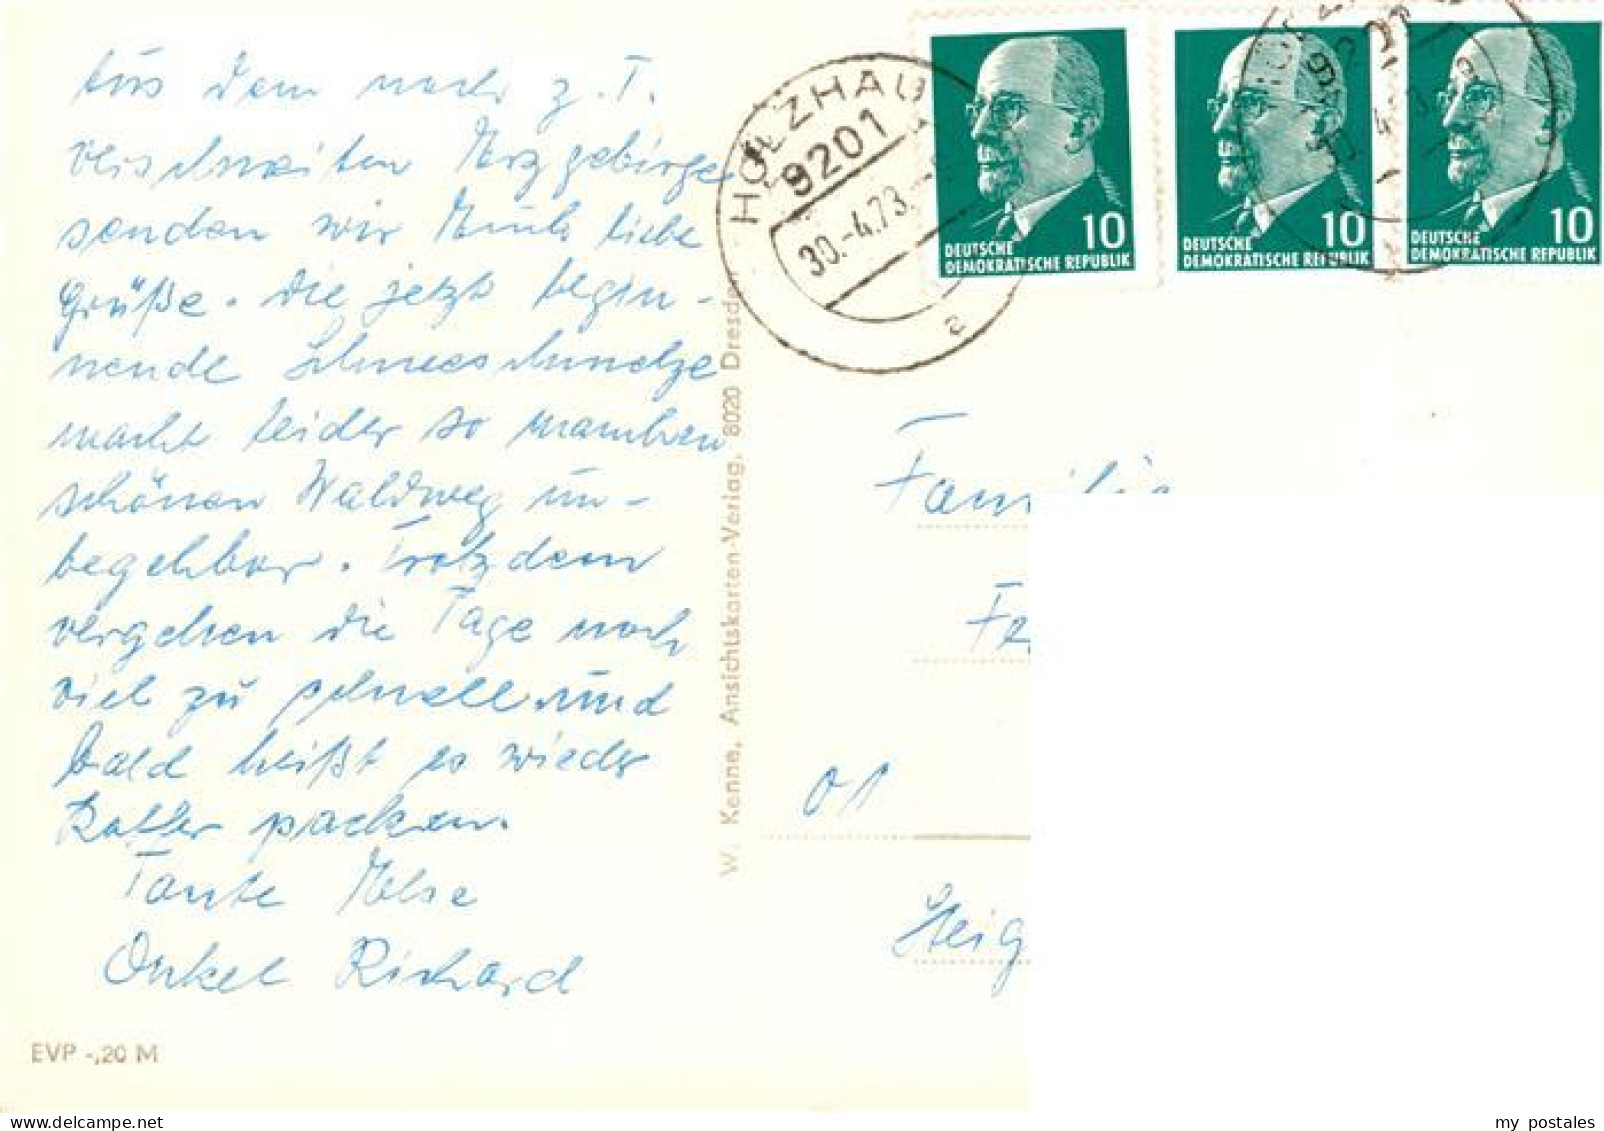 Aus dem noch z. T.
verschneiten Erzgebirge
senden wir Euch liebe
Grüße. Die jetzt begin-
nende Schneeschmelze
macht leider so manchen
schönen Waldweg un-
begehbar. Trotzdem
vergehen die Tage noch
viel zu schnell und
bald heißt es wieder
Koffer packen.
Tante Else
Onkel Richard
EVP -,20 M
W. Kenne, Ansichtskarten-Verlag, 8020 Dresden
HOLZHAU
9201
30.-4.73.
a
10
DEUTSCHE
DEMOKRATISCHE REPUBLIK
10
DEUTSCHE
DEMOKRATISCHE REPUBLIK
10
DEUTSCHE
DEMOKRATISCHE REPUBLIK
Familie
01
my postales